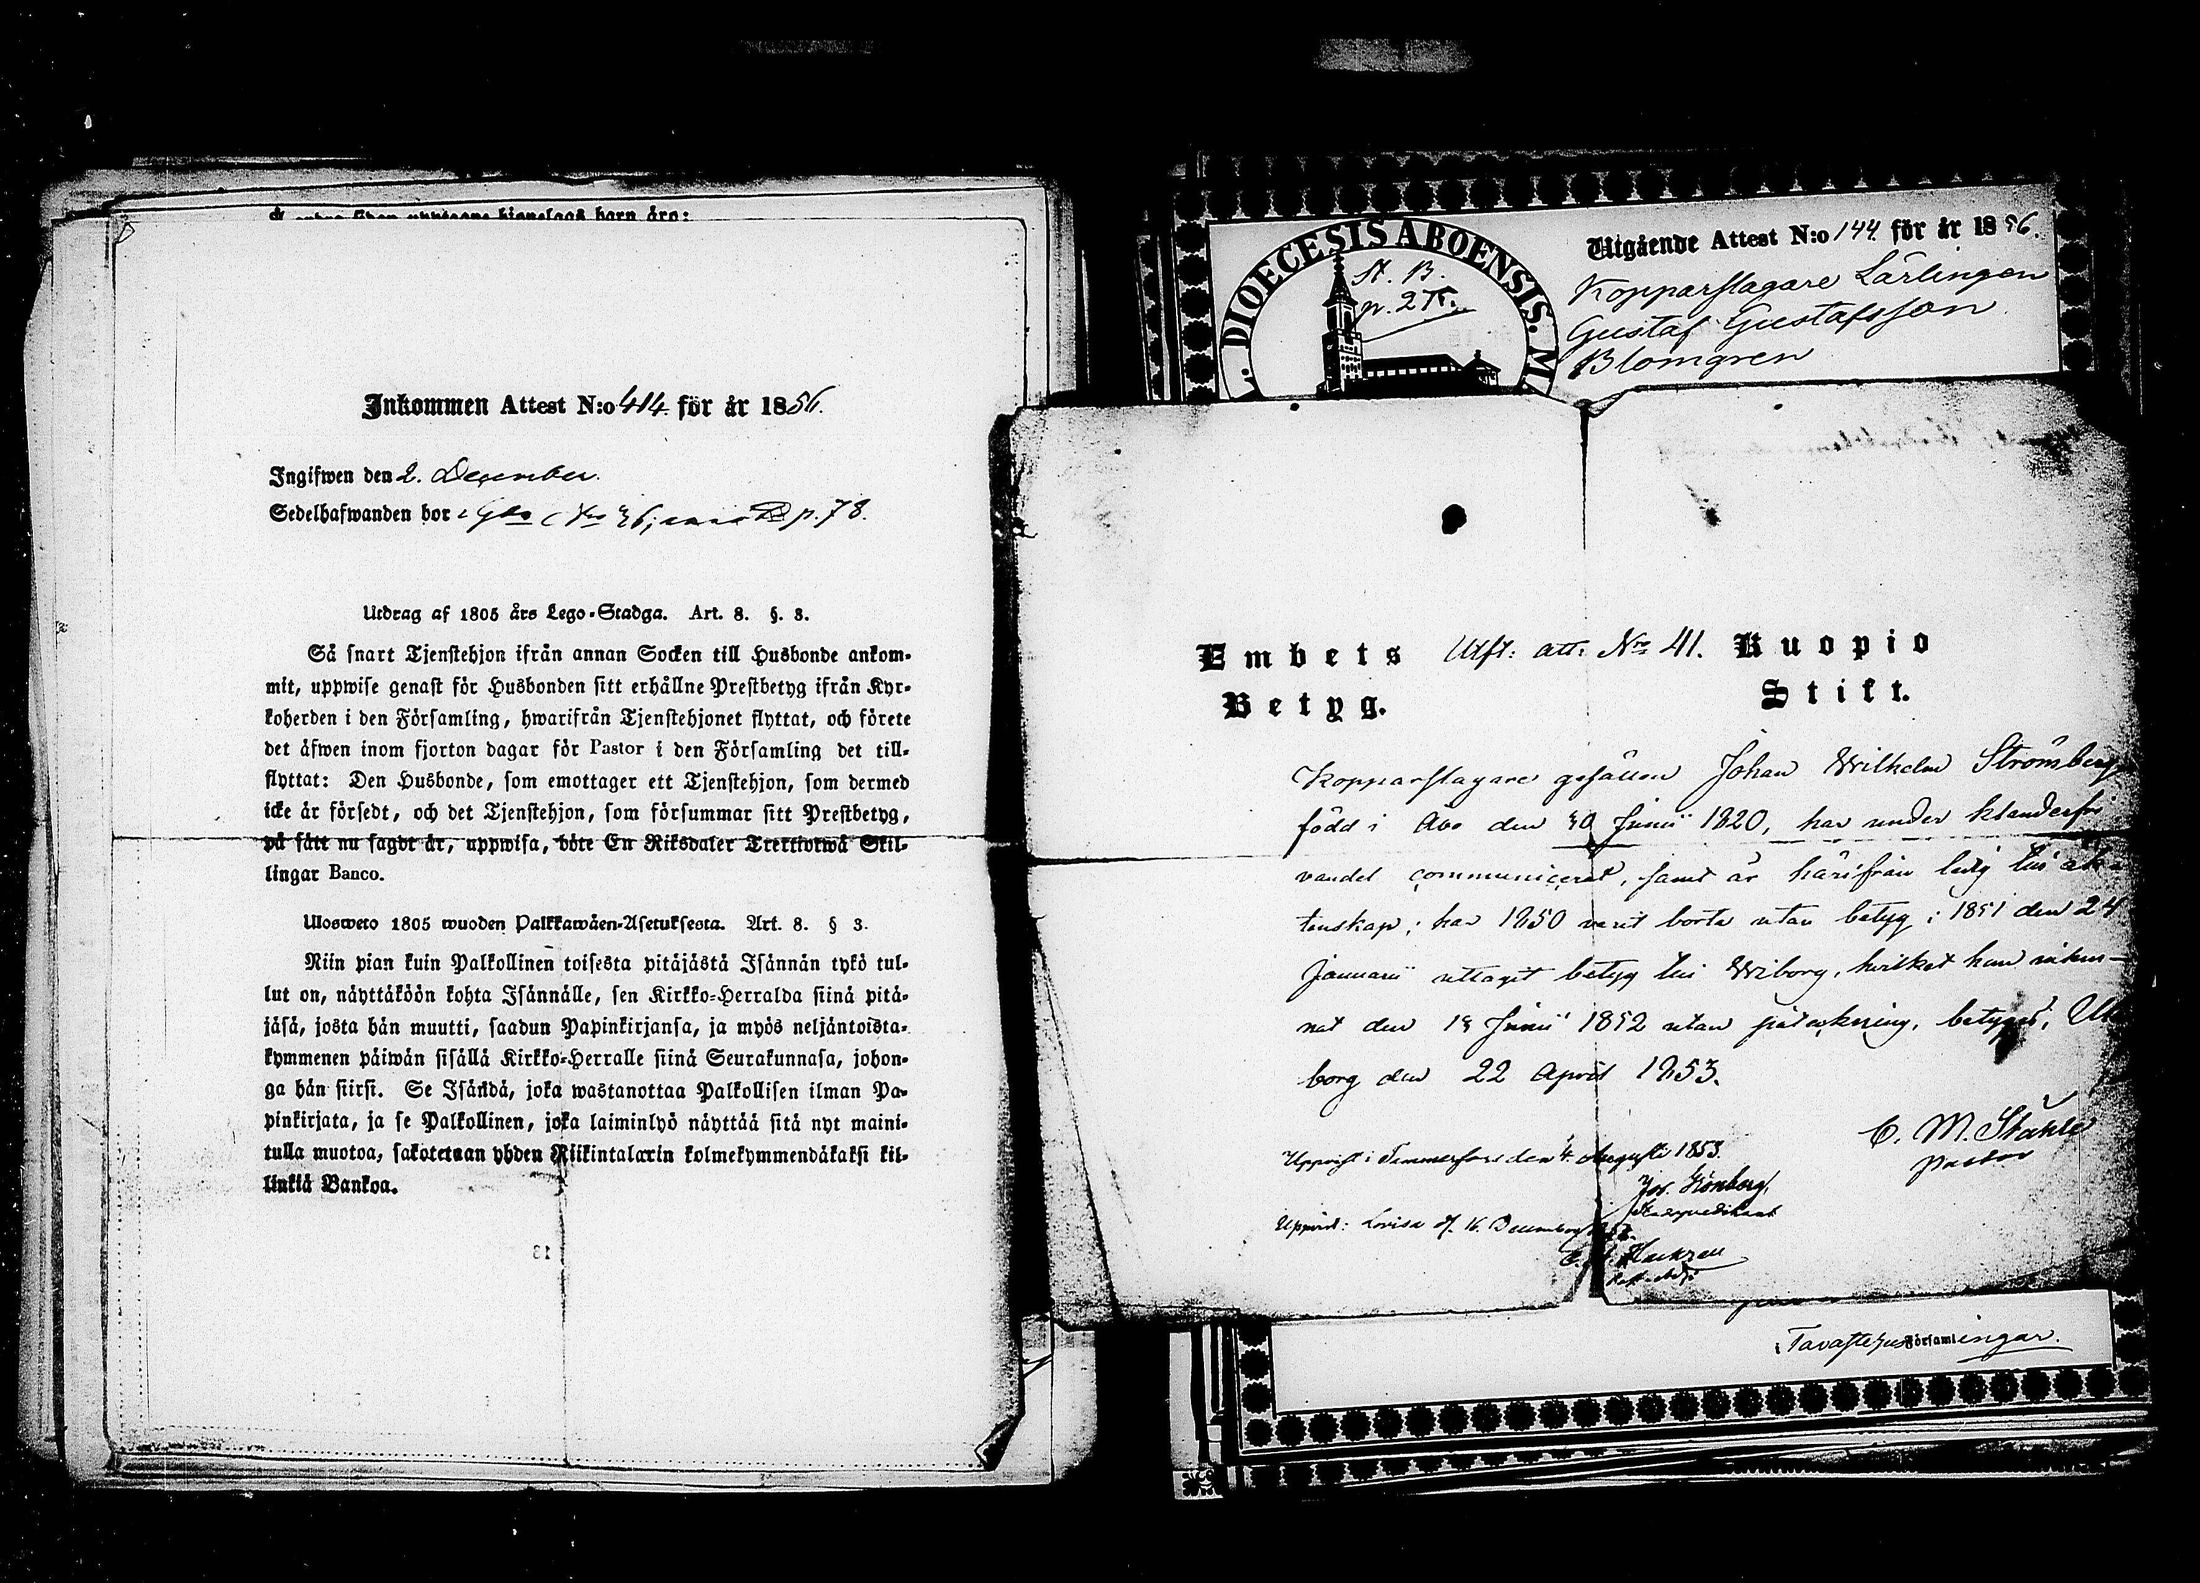 Inkommen Attest N:o 414. för år 1856.
Ingifwen den 2. December.
Sedelhafwanden bor p. 78.
Utdrag af 1805 års Lego-Stadga. Art. 8. §. 3.
Så snart Tjenstehjon ifrån annan Socken till Husbonde ankom-
mit, uppwise genast för Husbonden sitt erhållne Prestbetyg ifrån Kyr-
koherden i den Församling, hwarifrån Tjenstehjonet flyttat, och förete
det äfwen inom fjorton dagar för Pastor i den Församling det till-
flyttat: Den Husbonde, som emottager ett Tjenstehjon, som dermed
icke är försedt, och det Tjenstehjon, som försummar sitt Prestbetyg,
på sätt nu sagdt är, uppwisa, böte En Riksdaler Trettiotwå Skil-
lingar Banco.
Ulosweto 1805 wuoden Palkkawäen-Asetuksesta. Art. 8. § 3.
Niin pian kuin Palkollinen toisesta pitäjästä Isännän tykö tul-
lut on, näyttäköön kohta Isännälle, sen Kirkko-Herralda siinä pitä-
jäsä, josta hän muutti, saadun Papinkirjansa, ja myös neljäntoista-
kymmenen päiwän sisällä Kirkko-Herralle siinä Seurakunnasa, johon-
ga hän siirsi. Se Isändä, joka wastanottaa Palkollisen ilman Pa-
pinkirjata, ja se Palkollinen, joka laiminlyö näyttää sitä nyt maini-
tulla muotoa, sakotetaan yhden Riikintalarin kolmekymmendäkaksi kil-
linkiä Bankoa.
DIOECESIS ABOENSIS. M.
St. B.
p. 2
Utgående Attest N:o 144. för år 1856.
Kopparslagare Lärlingen
Gustaf Gustafsson
Blomgren
Embets Utfl: att: Nro 41. Kuopio
Betyg. Stift.
Kopparslagare gesällen Johan Wilhelm Strömberg
född i Åbo den 30 Junii 1820, har under klanderfri
vandel communicerat, samt är härifrån ledig till äk-
tenskap; har 1850 varit borta utan betyg; 1851 den 24
Januarii uttagit betyg till Wiborg, hvilket han inläm-
nat den Junii 1852 utan påteckning, betygas,
borg den 22 April 1853.
C. M. Ståhle
Pastor
Uppvist i Tammerfors den 4. Augusti 1853.
Uppvist: Lovisa d. 16. December
i Tavastehus Församlingar.